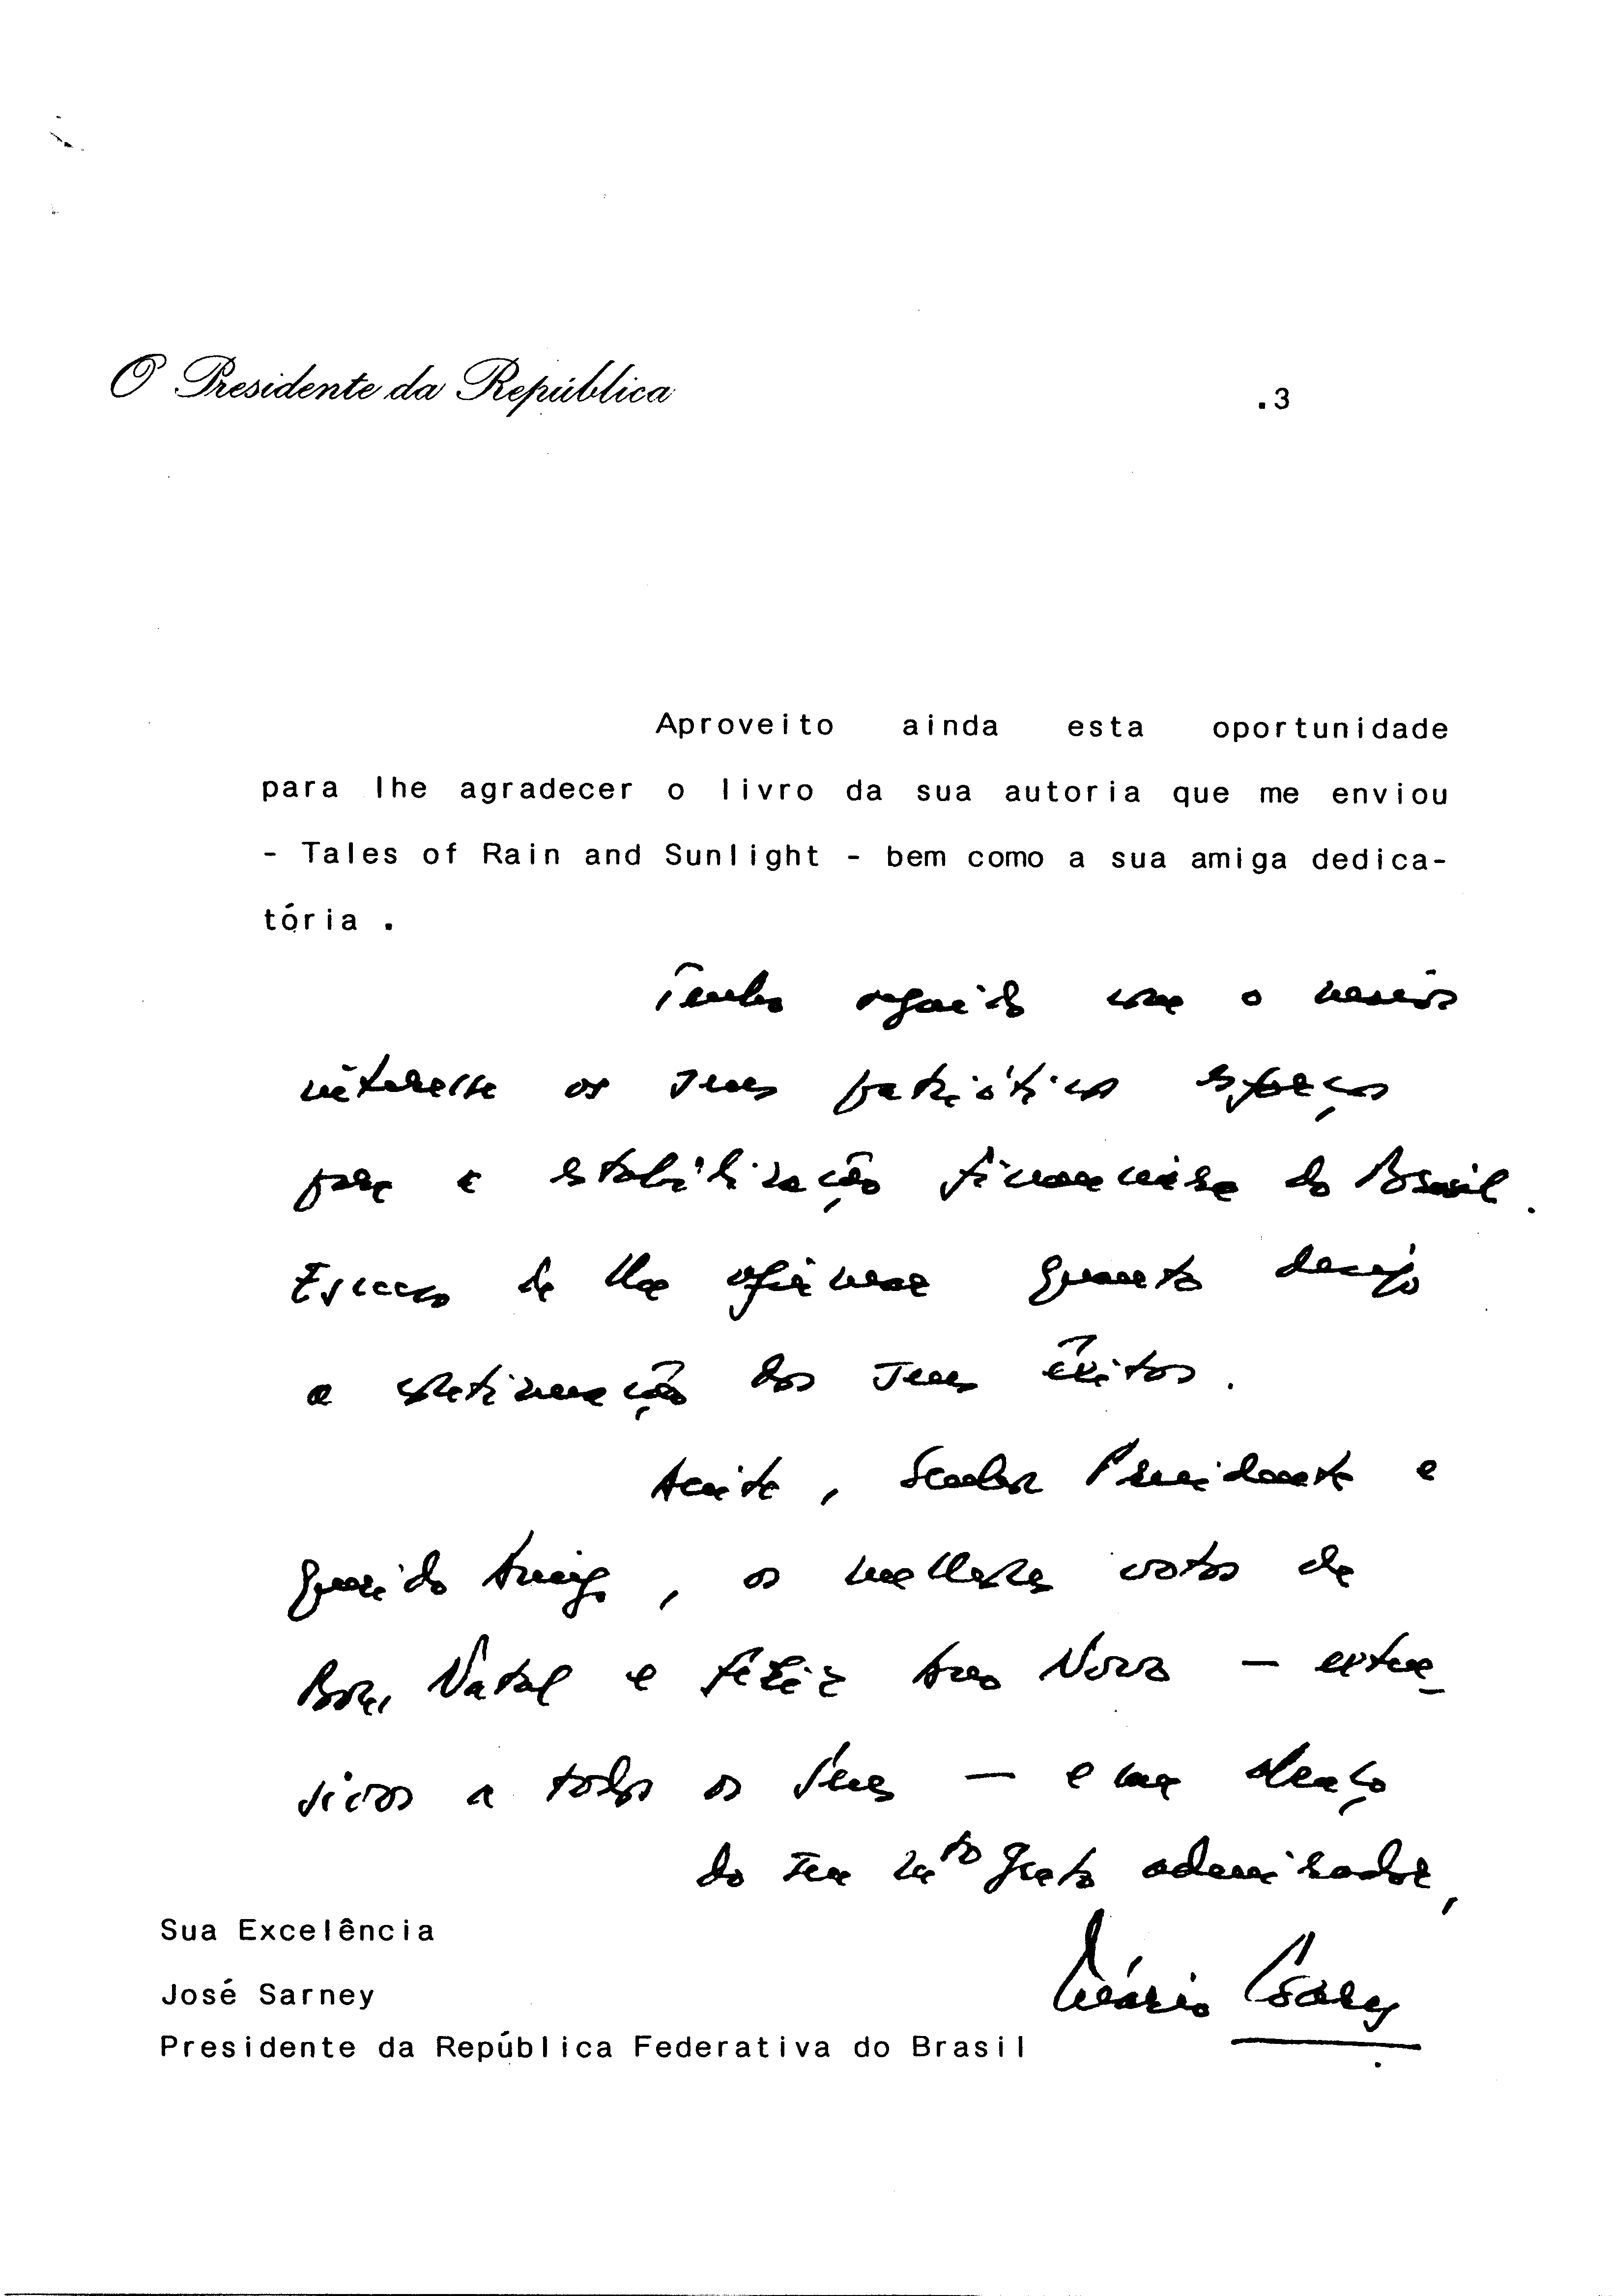 O Presidente da República
.3
Aproveito ainda esta oportunidade
para lhe agradecer o livro da sua autoria que me enviou
- Tales of Rain and Sunlight - bem como a sua amiga dedica-
tória .
Tenho seguido com o maior
interesse os seus patrióticos esforços
para a estabilização financeira do Brasil.
Escuso de lhe afirmar quanto desejo
a continuação dos seus êxitos.
Aceite, Senhor Presidente e
querido Amigo, os melhores votos de
Bom Natal e feliz Ano Novo - exten-
sivos a todos os seus - e um abraço
do seu mto grato admirador,
Sua Excelência
Mário Soares
José Sarney
Presidente da República Federativa do Brasil